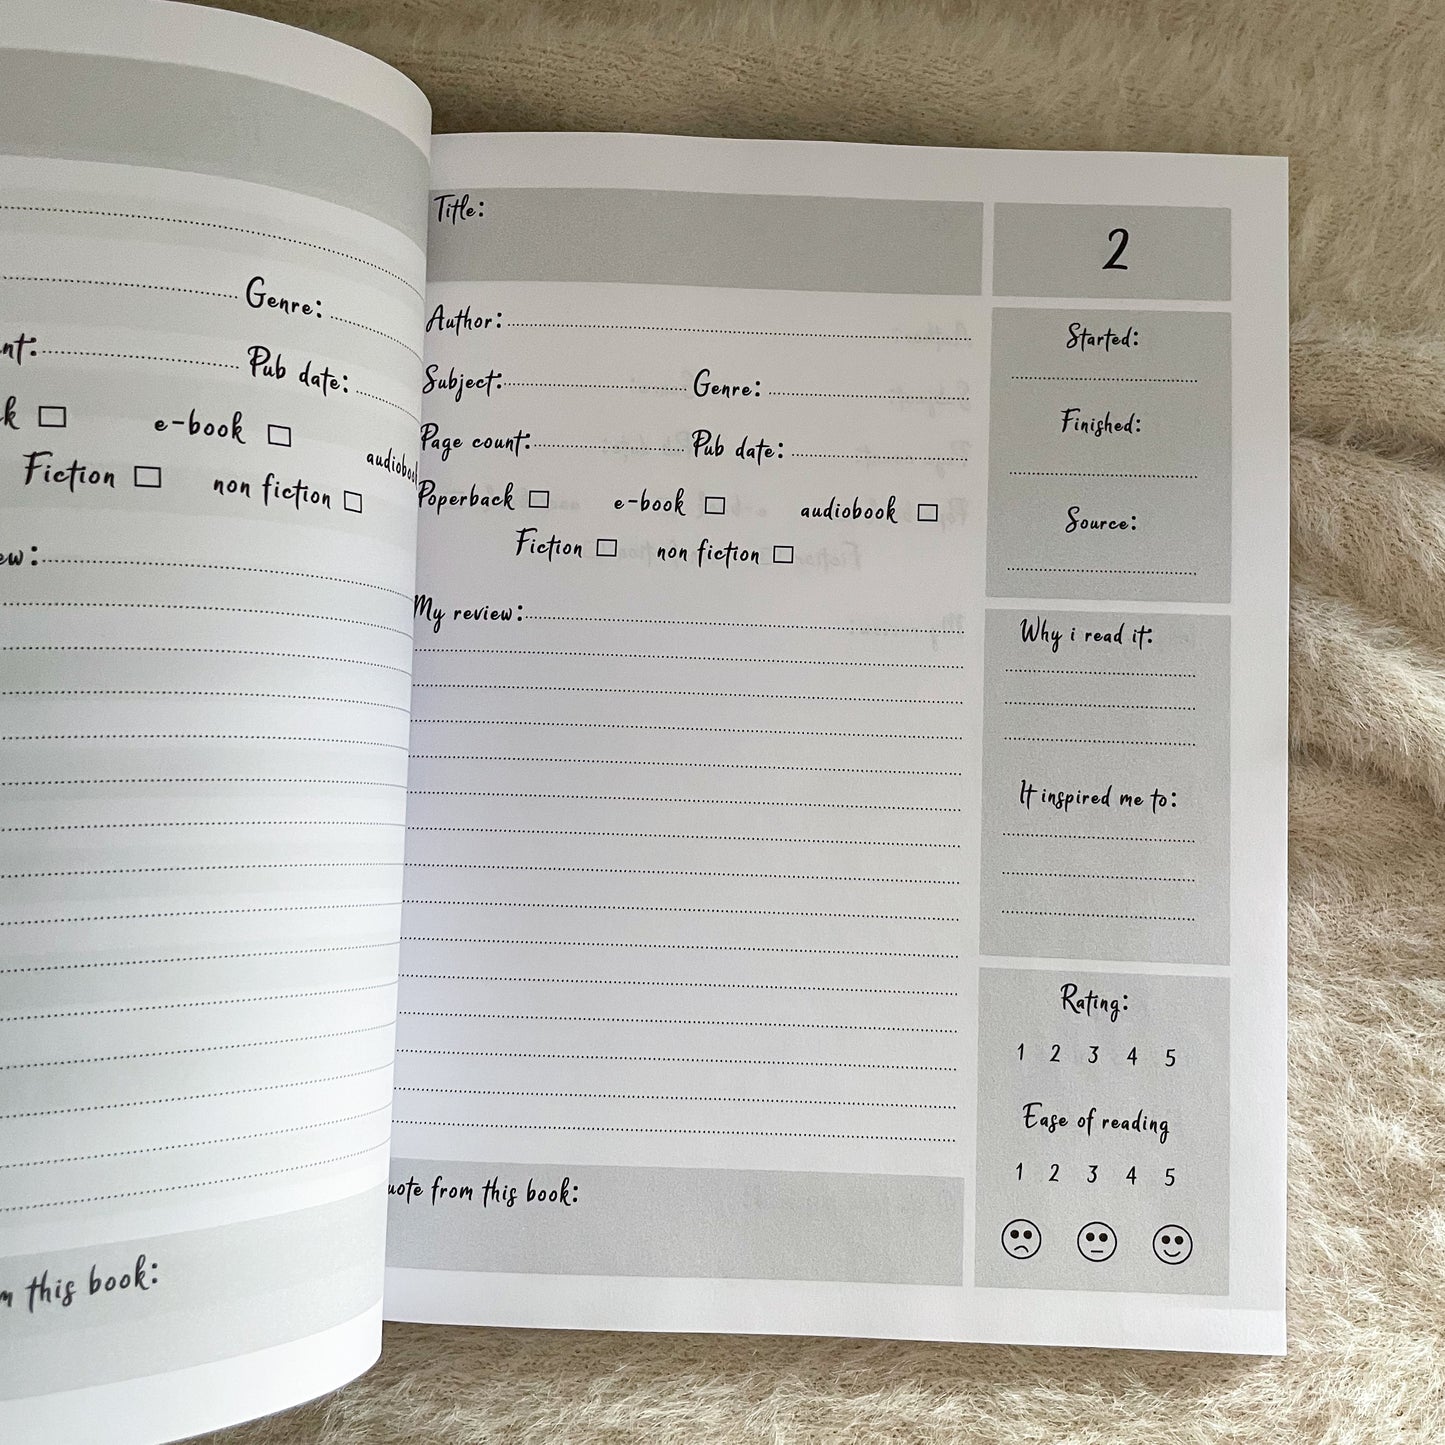 Genre:
Pub date:
e-book
audiobook
Fiction non fiction
this book:
Title:
2
Author:
Subject: Genre:
Page count: Pub date:
Poperback e-book audiobook
Fiction non fiction
My review:
from this book:
Started:
Finished:
Source:
Why i read it:
It inspired me to:
Rating:
1 2 3 4 5
Ease of reading
1 2 3 4 5